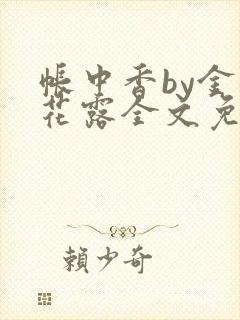 帳中香by金
花露全文免
賴少奇